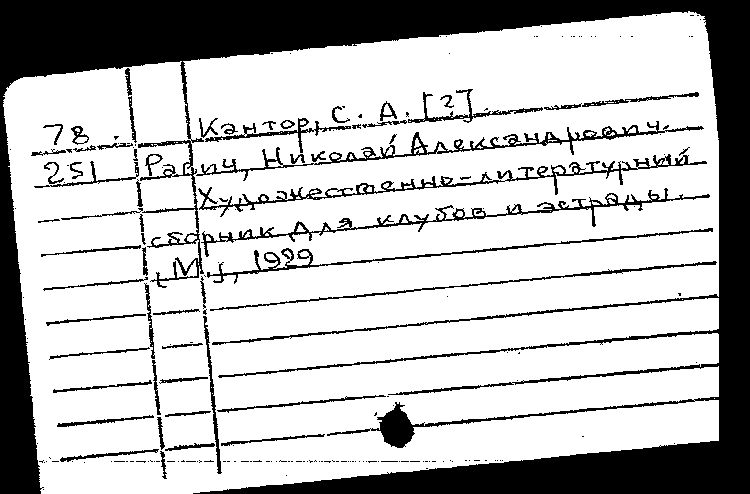 78. Кантор, С. А. [?].
251 Равич, Николай Александрович.
Художественно-литературный
сборник для клубов и эстрады.
[М.], 1929